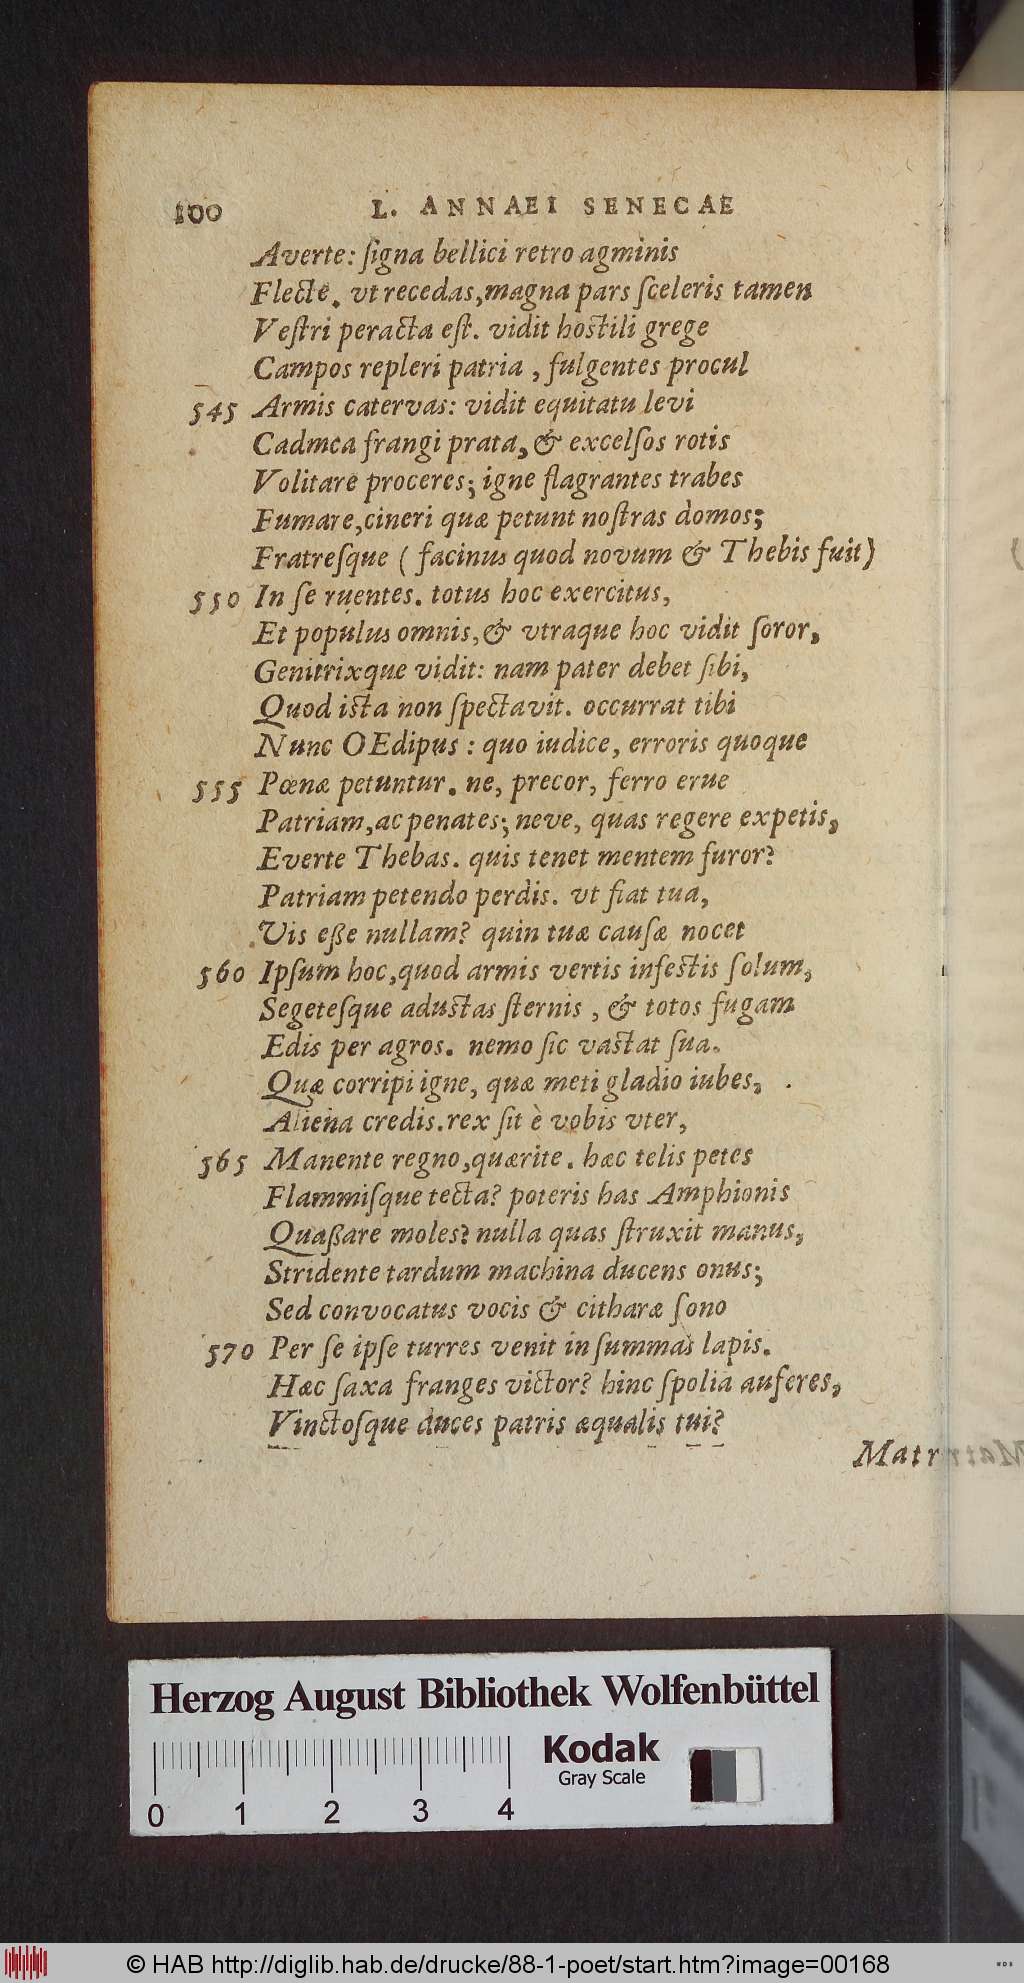 100 L. ANNAEI SENECAE
Averte: ſigna bellici retro agminis
Flecte. vt recedas, magna pars ſceleris tamen
Veſtri peracta eſt. vidit hoſtili grege
Campos repleri patria, fulgentes procul
545 Armis catervas: vidit equitatu levi
Cadmea frangi prata, & excelſos rotis
Volitare proceres; igne flagrantes trabes
Fumare, cineri quæ petunt noſtras domos;
Fratreſque (facinus quod novum & Thebis fuit)
550 In ſe ruentes. totus hoc exercitus,
Et populus omnis, & vtraque hoc vidit ſoror,
Genitrixque vidit: nam pater debet ſibi,
Quod iſta non ſpectavit. occurrat tibi
Nunc OEdipus: quo iudice, erroris quoque
555 Pœnæ petuntur. ne, precor, ferro erue
Patriam, ac penates; neve, quas regere expetis,
Everte Thebas. quis tenet mentem furor?
Patriam petendo perdis. vt fiat tua,
Vis eße nullam? quin tuæ cauſæ nocet
560 Ipſum hoc, quod armis vertis infeſtis ſolum,
Segeteſque aduſtas ſternis, & totos fugam
Edis per agros. nemo ſic vaſtat ſua.
Quæ corripi igne, quæ meti gladio iubes,
Aliena credis. rex ſit è vobis vter,
565 Manente regno, quærite. hæc telis petes
Flammiſque tecta? poteris has Amphionis
Quaßare moles? nulla quas ſtruxit manus,
Stridente tardum machina ducens onus;
Sed convocatus vocis & citharæ ſono
570 Per ſe ipſe turres venit in ſummas lapis.
Hæc ſaxa franges victor? hinc ſpolia auferes,
Vinctoſque duces patris æqualis tui?
Matr
Herzog August Bibliothek Wolfenbüttel
Kodak
Gray Scale
0 1 2 3 4
© HAB http://diglib.hab.de/drucke/88-1-poet/start.htm?image=00168